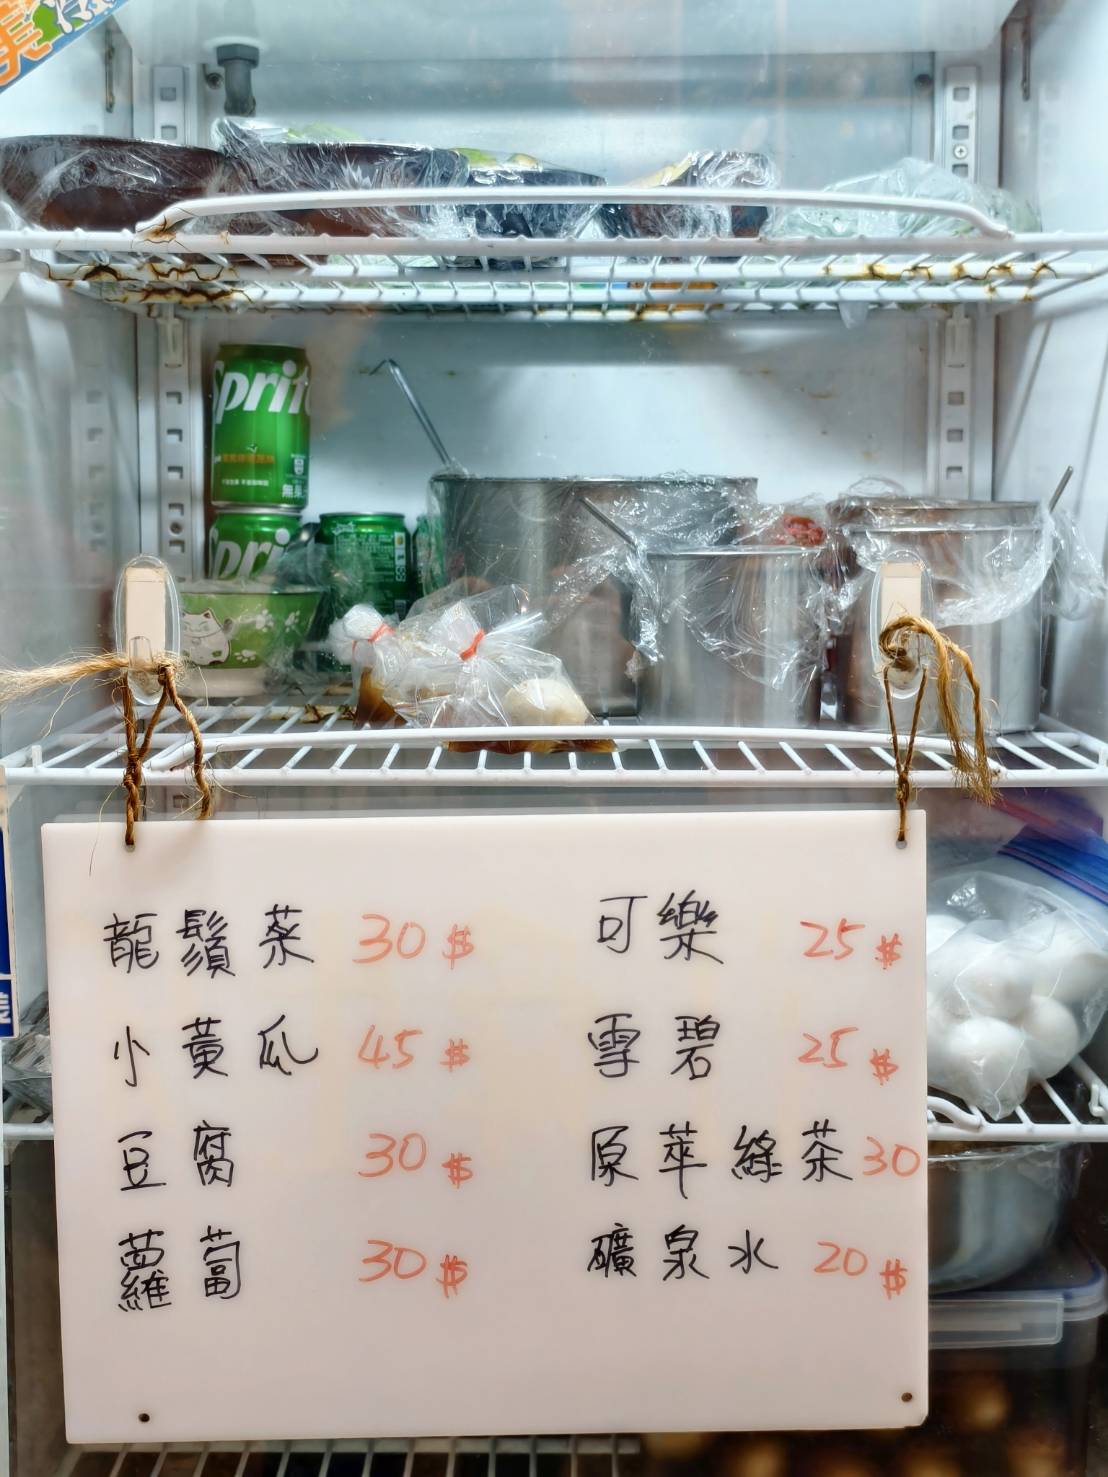 Sprit
無果
Spri
龍鬚菜 30$
小黃瓜 45$
豆腐 30$
蘿蔔 30$
可樂 25$
雪碧 25$
原萃綠茶30
礦泉水 20$